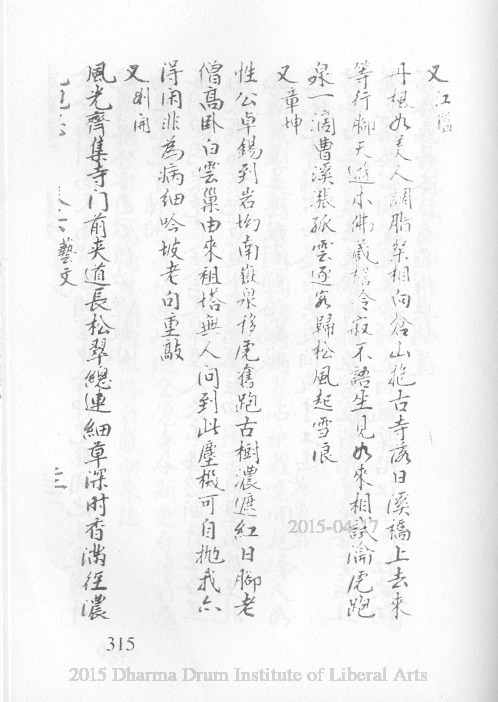 又 江
丹楓如美人調脂粲相向倉山抱古寺落日溪橋上去來
等行腳天遊水佛藏楷冷寂不語坐見如來相試瀹虎跑
泉一滴曹溪漲孤雲逐客歸松風起雪浪
又 章坤
性公卓錫到岩坳南嶽泉移虎舊跑古樹濃遮紅日腳老
僧高臥白雲巢由來祖塔無人問到此塵機可自拋我亦
得閑非為病細吟坡老句重敲
又 開
風光齊集寺门前夾道長松翠總連細草深时香滿徑濃
藝文
315
2015-04-17
2015 Dharma Drum Institute of Liberal Arts